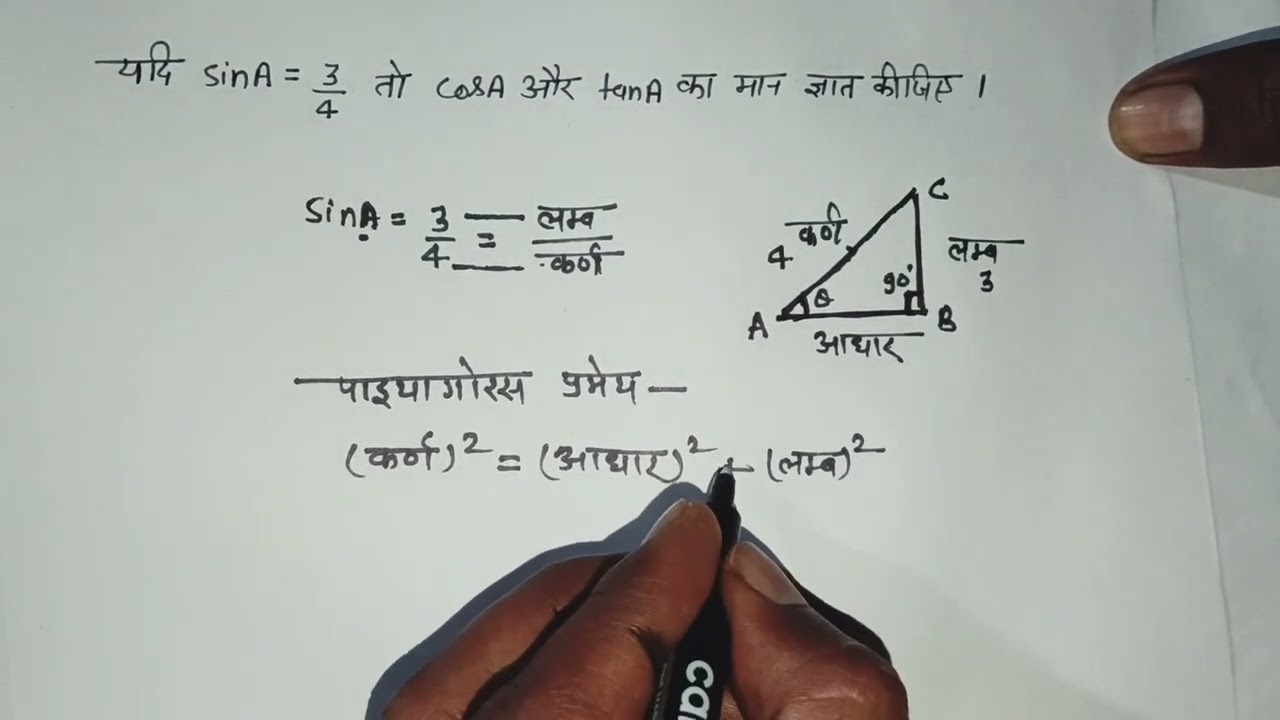 यदि sinA = 3/4 तो cosA और tanA का मान ज्ञात कीजिए ।
SinA = 3/4 = लम्ब/कर्ण
C
कर्ण
4
लम्ब
3
90°
θ
A
B
आधार
पाइथागोरस प्रमेय —
(कर्ण)² = (आधार)² + (लम्ब)²